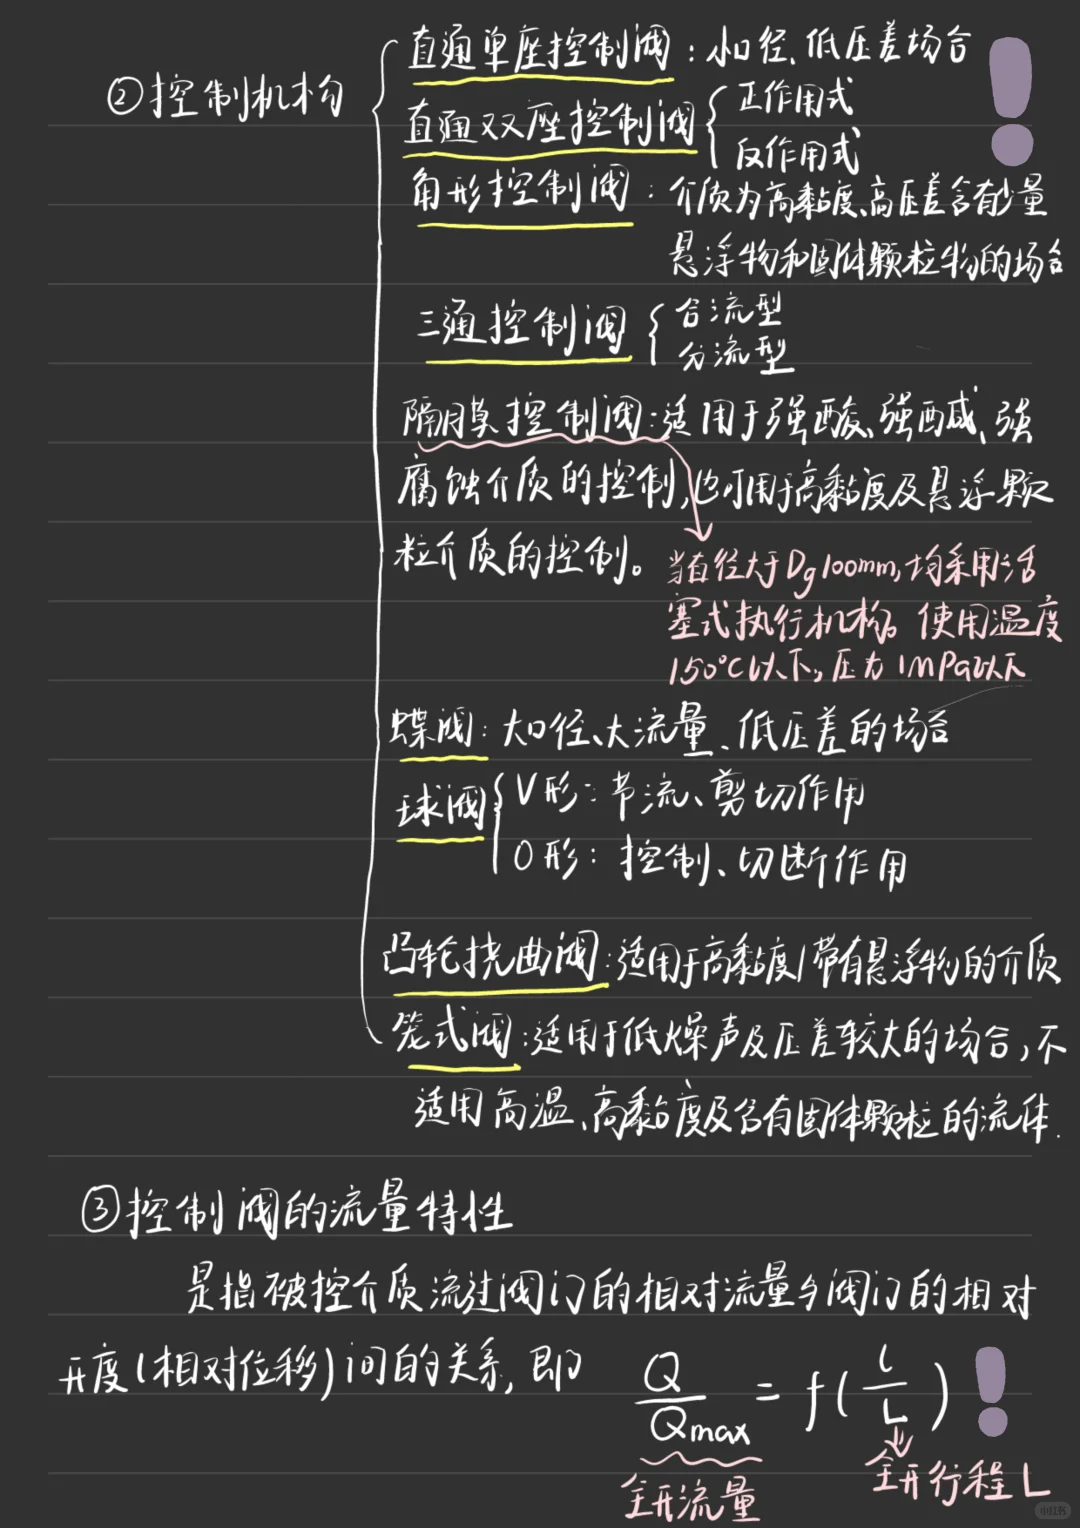 ②控制机构
直通单座控制阀：小口径、低压差场合
直通双座控制阀
正作用式
反作用式
角形控制阀：介质为高黏度、高压差含有少量
悬浮物和固体颗粒物的场合
三通控制阀
合流型
分流型
隔膜控制阀：适用于强酸、强碱、强
腐蚀介质的控制，也可用于高黏度及悬浮颗
粒介质的控制。
当直径大于Dg100mm，均采用活
塞式执行机构。使用温度
150℃以下，压力1MPa以下
蝶阀：大口径、大流量、低压差的场合
球阀
V形：节流、剪切作用
O形：控制、切断作用
凸轮挠曲阀：适用于高黏度/带有悬浮物的介质
笼式阀：适用于低噪声及压差较大的场合，不
适用高温、高黏度及含有固体颗粒的流体.
③控制阀的流量特性
是指被控介质流过阀门的相对流量与阀门的相对
开度(相对位移)间的关系，即
Q/Qmax = f(l/L)
全开流量
全开行程L
小红书